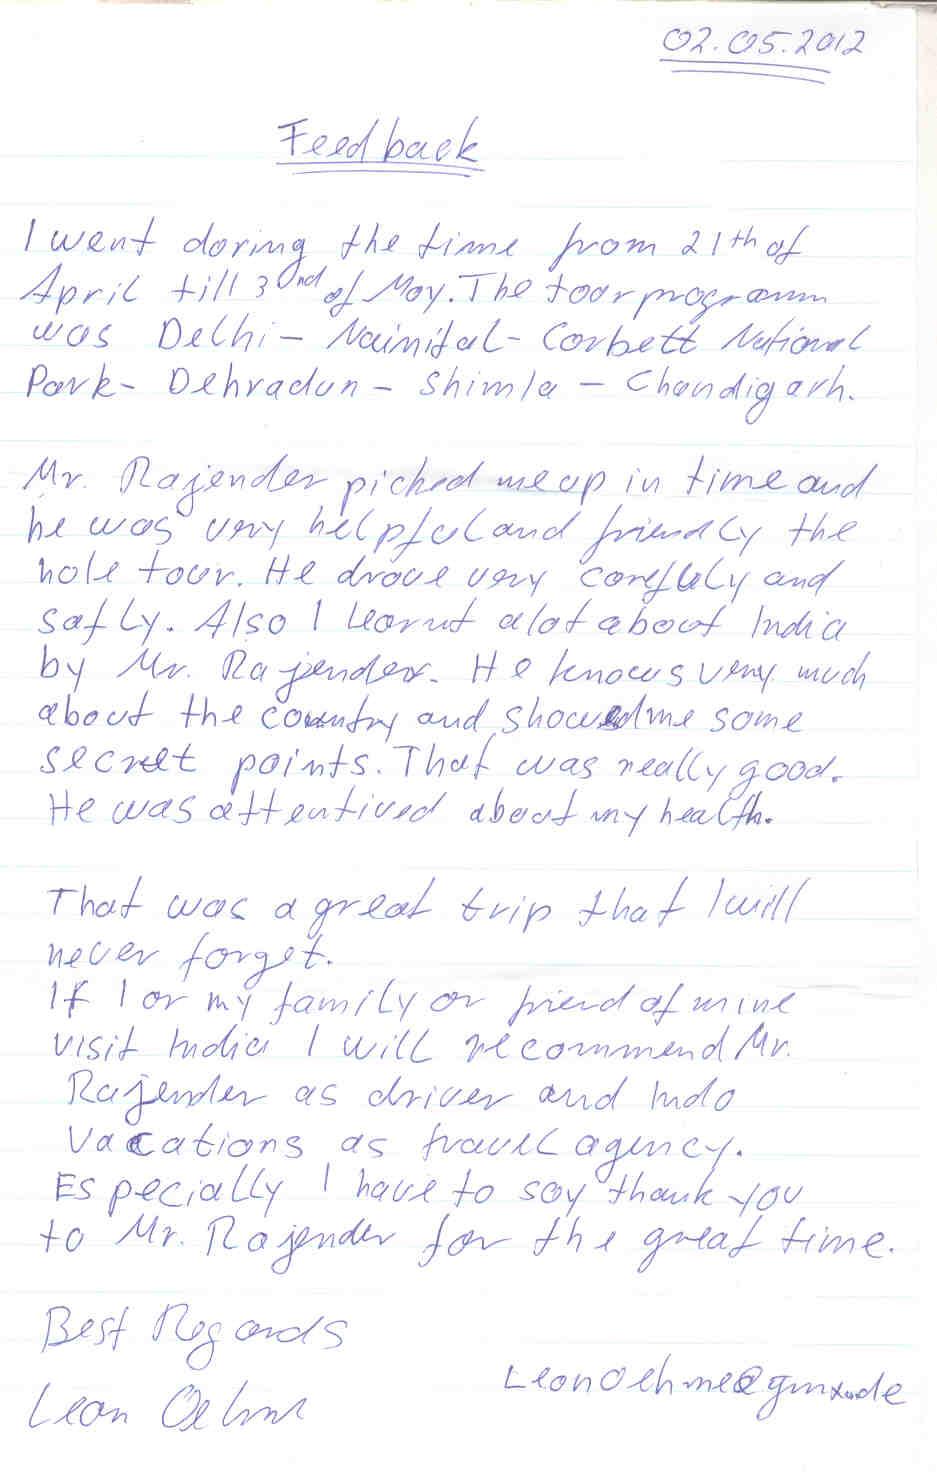 02.05.2012
Feedback
I went doring the time from 21th of
April till 30nd of May. The toor programm
was Delhi - Nainital - Corbett National
Park - Dehradun - Shimla - Chandigarh.
Mr. Rajender picked me up in time and
he was very helpful and friendly the
hole tour. He drove very carefuly and
safly. Also I learnt alot about India
by Mr. Rajender. He knows very much
about the country and showed me some
secret points. That was really good.
He was attentived about my health.
That was a great trip that I will
never forget.
If I or my family or friend of mine
visit India I will recommend Mr.
Rajender as driver and Indo
Vacations as travel agency.
Especially I have to say thank you
to Mr. Rajender for the great time.
Best Regards
LeonOehme@gmx.de
Leon Oehme